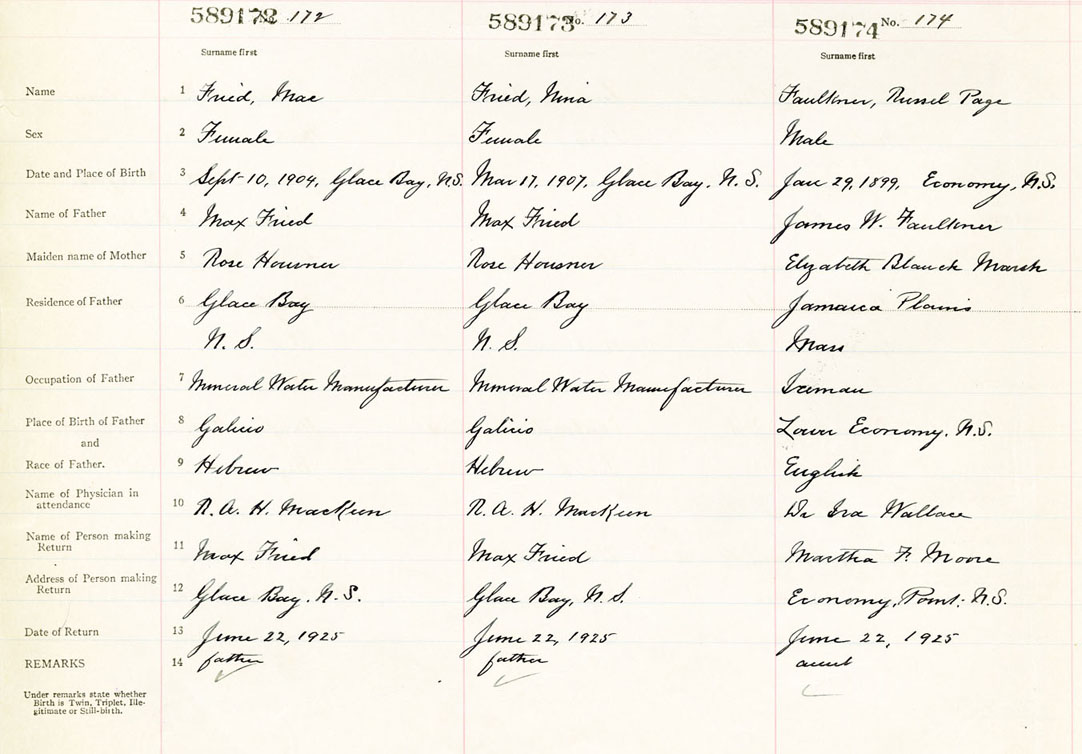 589172 172 589173 No. 173 589174 No. 174
Surname first Surname first Surname first
Name 1 Fried, Mae Fried, Nina Faulkner, Russel Page
Sex 2 Female Female Male
Date and Place of Birth 3 Sept 10, 1904, Glace Bay, N.S. Mar 17, 1907, Glace Bay, N.S. Jan 29, 1899, Economy, N.S.
Name of Father 4 Max Fried Max Fried James W. Faulkner
Maiden name of Mother 5 Rose Housner Rose Housner Elizabeth Blanck Marsh
Residence of Father 6 Glace Bay Glace Bay Jamaica Plains
N. S. N. S. Mass
Occupation of Father 7 Mineral Water Manufacturer Mineral Water Manufacturer Iceman
Place of Birth of Father 8 Galicio Galicio Lower Economy. N.S.
and
Race of Father. 9 Hebrew Hebrew English
Name of Physician in
attendance 10 R. A. H. MacKeen R. A. H. MacKeen Dr Ira Wallace
Name of Person making
Return 11 Max Fried Max Fried Martha F. Moore
Address of Person making
Return 12 Glace Bay. N. S. Glace Bay, N. S. Economy, Point; N.S.
Date of Return 13 June 22, 1925 June 22, 1925 June 22, 1925
REMARKS 14 father father aunt
Under remarks state whether
Birth is Twin, Triplet, Ille-
gitimate or Still-birth.